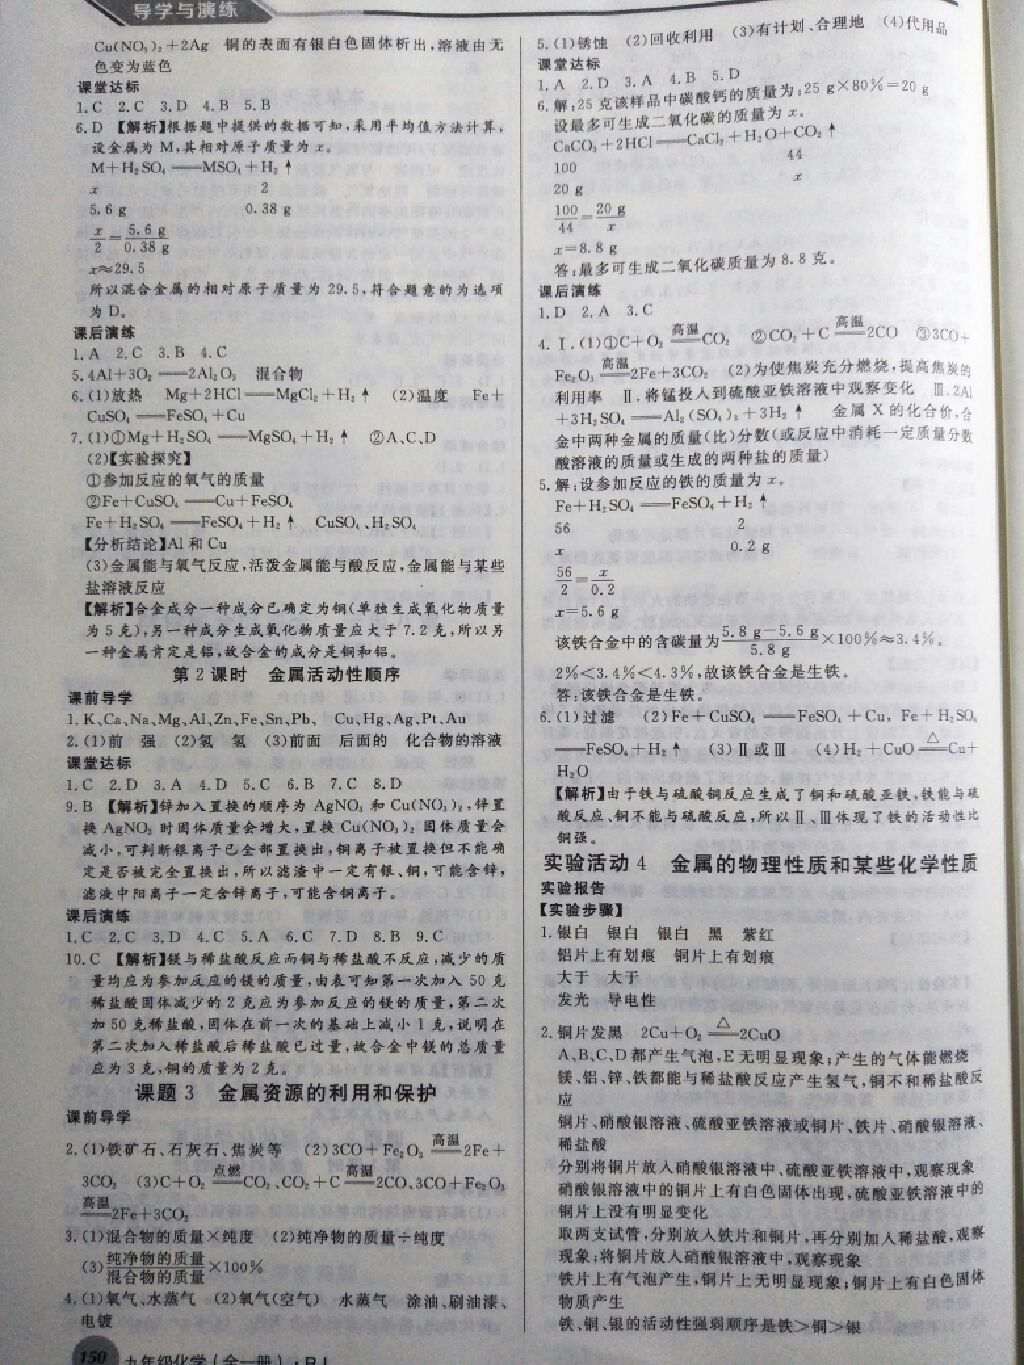 导学与演练
Cu(NO₃)₂+2Ag 铜的表面有银白色固体析出,溶液由无
色变为蓝色
课堂达标
1.C 2.C 3.D 4.B 5.B
6.D 【解析】根据题中提供的数据可知,采用平均值方法计算,
设金属为M,其相对原子质量为x。
M+H₂SO₄══MSO₄+H₂↑
x 2
5.6 g 0.38 g
x/2=5.6 g/0.38 g
x≈29.5
所以混合金属的相对原子质量为 29.5,符合题意的为选项
为 D。
课后演练
1.A 2.C 3.B 4.C
5.4Al+3O₂══2Al₂O₃ 混合物
6.(1)放热 Mg+2HCl══MgCl₂+H₂↑ (2)温度 Fe+
CuSO₄══FeSO₄+Cu
7.(1)①Mg+H₂SO₄══MgSO₄+H₂↑ ②A、C、D
(2)【实验探究】
①参加反应的氧气的质量
②Fe+CuSO₄══Cu+FeSO₄
Fe+H₂SO₄══FeSO₄+H₂↑ CuSO₄、H₂SO₄
【分析结论】Al 和 Cu
(3)金属能与氧气反应,活泼金属能与酸反应,金属能与某些
盐溶液反应
【解析】合金成分一种成分已确定为铜(单独生成氧化物质量
为 5 克),另一种成分生成氧化物质量应大于 7.2 克,所以另
一种金属肯定是铝,故合金的成分是铜和铝。
第 2 课时 金属活动性顺序
课前导学
1.K、Ca、Na、Mg、Al、Zn、Fe、Sn、Pb、 Cu、Hg、Ag、Pt、Au
2.(1)前 强 (2)氢 氢 (3)前面 后面的 化合物的溶液
课堂达标
1.C 2.D 3.A 4.D 5.C 6.B 7.C 8.D
9.B 【解析】锌加入置换的顺序为 AgNO₃ 和 Cu(NO₃)₂,锌置
换 AgNO₃ 时固体质量会增大,置换 Cu(NO₃)₂ 固体质量会
减小,可判断银离子已全部置换出,铜离子被置换但不能确
定是否被完全置换出,所以滤渣中一定有银、铜,可能含锌,
滤液中阳离子一定含锌离子,可能含铜离子。
课后演练
1.C 2.C 3.D 4.C 5.A 6.C 7.D 8.B 9.C
10.C 【解析】镁与稀盐酸反应而铜与稀盐酸不反应,减少的质
量均应为参加反应的镁的质量,由表可知第一次加入 50 克
稀盐酸固体减少的 2 克应为参加反应的镁的质量,第二次
加 50 克稀盐酸,固体在前一次的基础上减小 1 克,说明在
第二次加入稀盐酸后稀盐酸已过量,故合金中镁的总质量
应为 3 克,铜的质量为 2 克。
课题 3 金属资源的利用和保护
课前导学
2.(1)铁矿石、石灰石、焦炭等 (2)3CO+Fe₂O₃ 高温══2Fe+
3CO₂ (3)C+O₂ 点燃══CO₂、CO₂+C 高温══2CO、3CO+Fe₂O₃
高温══2Fe+3CO₂
3.(1)混合物的质量×纯度 (2)纯净物的质量÷纯度
(3)纯净物的质量/混合物的质量×100%
4.(1)氧气、水蒸气 (2)氧气(空气) 水蒸气 涂油、刷油漆、
电镀
150 九年级化学(全一册)·RJ
5.(1)锈蚀 (2)回收利用 (3)有计划、合理地 (4)代用品
课堂达标
1.A 2.D 3.A 4.B 5.D
6.解:25 克该样品中碳酸钙的质量为:25 g×80%=20 g
设最多可生成二氧化碳的质量为 x。
CaCO₃+2HCl══CaCl₂+H₂O+CO₂↑
100 44
20 g x
100/44=20 g/x
x=8.8 g
答:最多可生成二氧化碳质量为 8.8 克。
课后演练
1.D 2.A 3.C
4.Ⅰ.(1)①C+O₂ 高温══CO₂ ②CO₂+C 高温══2CO ③3CO+
Fe₂O₃ 高温══2Fe+3CO₂ (2)为使焦炭充分燃烧,提高焦炭的
利用率 Ⅱ.将锰投入到硫酸亚铁溶液中观察变化 Ⅲ.2Al
+3H₂SO₄══Al₂(SO₄)₃+3H₂↑ 金属 X 的化合价,合
金中两种金属的质量(比)分数(或反应中消耗一定质量分数
酸溶液的质量或生成的两种盐的质量)
5.解:设参加反应的铁的质量为 x。
Fe+H₂SO₄══FeSO₄+H₂↑
56 2
x 0.2 g
56/2=x/0.2
x=5.6 g
该铁合金中的含碳量为5.8 g−5.6 g/5.8 g×100%≈3.4%。
2%<3.4%<4.3%,故该铁合金是生铁。
答:该铁合金是生铁。
6.(1)过滤 (2)Fe+CuSO₄══FeSO₄+Cu,Fe+H₂SO₄
══FeSO₄+H₂↑ (3)Ⅱ或Ⅲ (4)H₂+CuO △══Cu+
H₂O
【解析】由于铁与硫酸铜反应生成了铜和硫酸亚铁,铁能与硫
酸反应、铜不能与硫酸反应,所以Ⅱ、Ⅲ体现了铁的活动性比
铜强。
实验活动 4 金属的物理性质和某些化学性质
实验报告
【实验步骤】
1.银白 银白 银白 黑 紫红
铝片上有划痕 铜片上有划痕
大于 大于
发光 导电性
2.铜片发黑 2Cu+O₂ △══2CuO
A、B、C、D 都产生气泡,E 无明显现象;产生的气体能燃烧
镁、铝、锌、铁都能与稀盐酸反应产生氢气,铜不和稀盐酸反
应
铜片、硝酸银溶液、硫酸亚铁溶液或铜片、铁片、硝酸银溶液、
稀盐酸
分别将铜片放入硝酸银溶液中、硫酸亚铁溶液中,观察现象
硝酸银溶液中的铜片上有白色固体出现,硫酸亚铁溶液中的
铜片上没有明显变化
取两支试管,分别放入铁片和铜片,再分别加入稀盐酸,观察
现象;将铜片放入硝酸银溶液中,观察现象
铁片上有气泡产生,铜片上无明显现象;铜片上有白色固体
物质产生
铁、铜、银的活动性强弱顺序是铁>铜>银